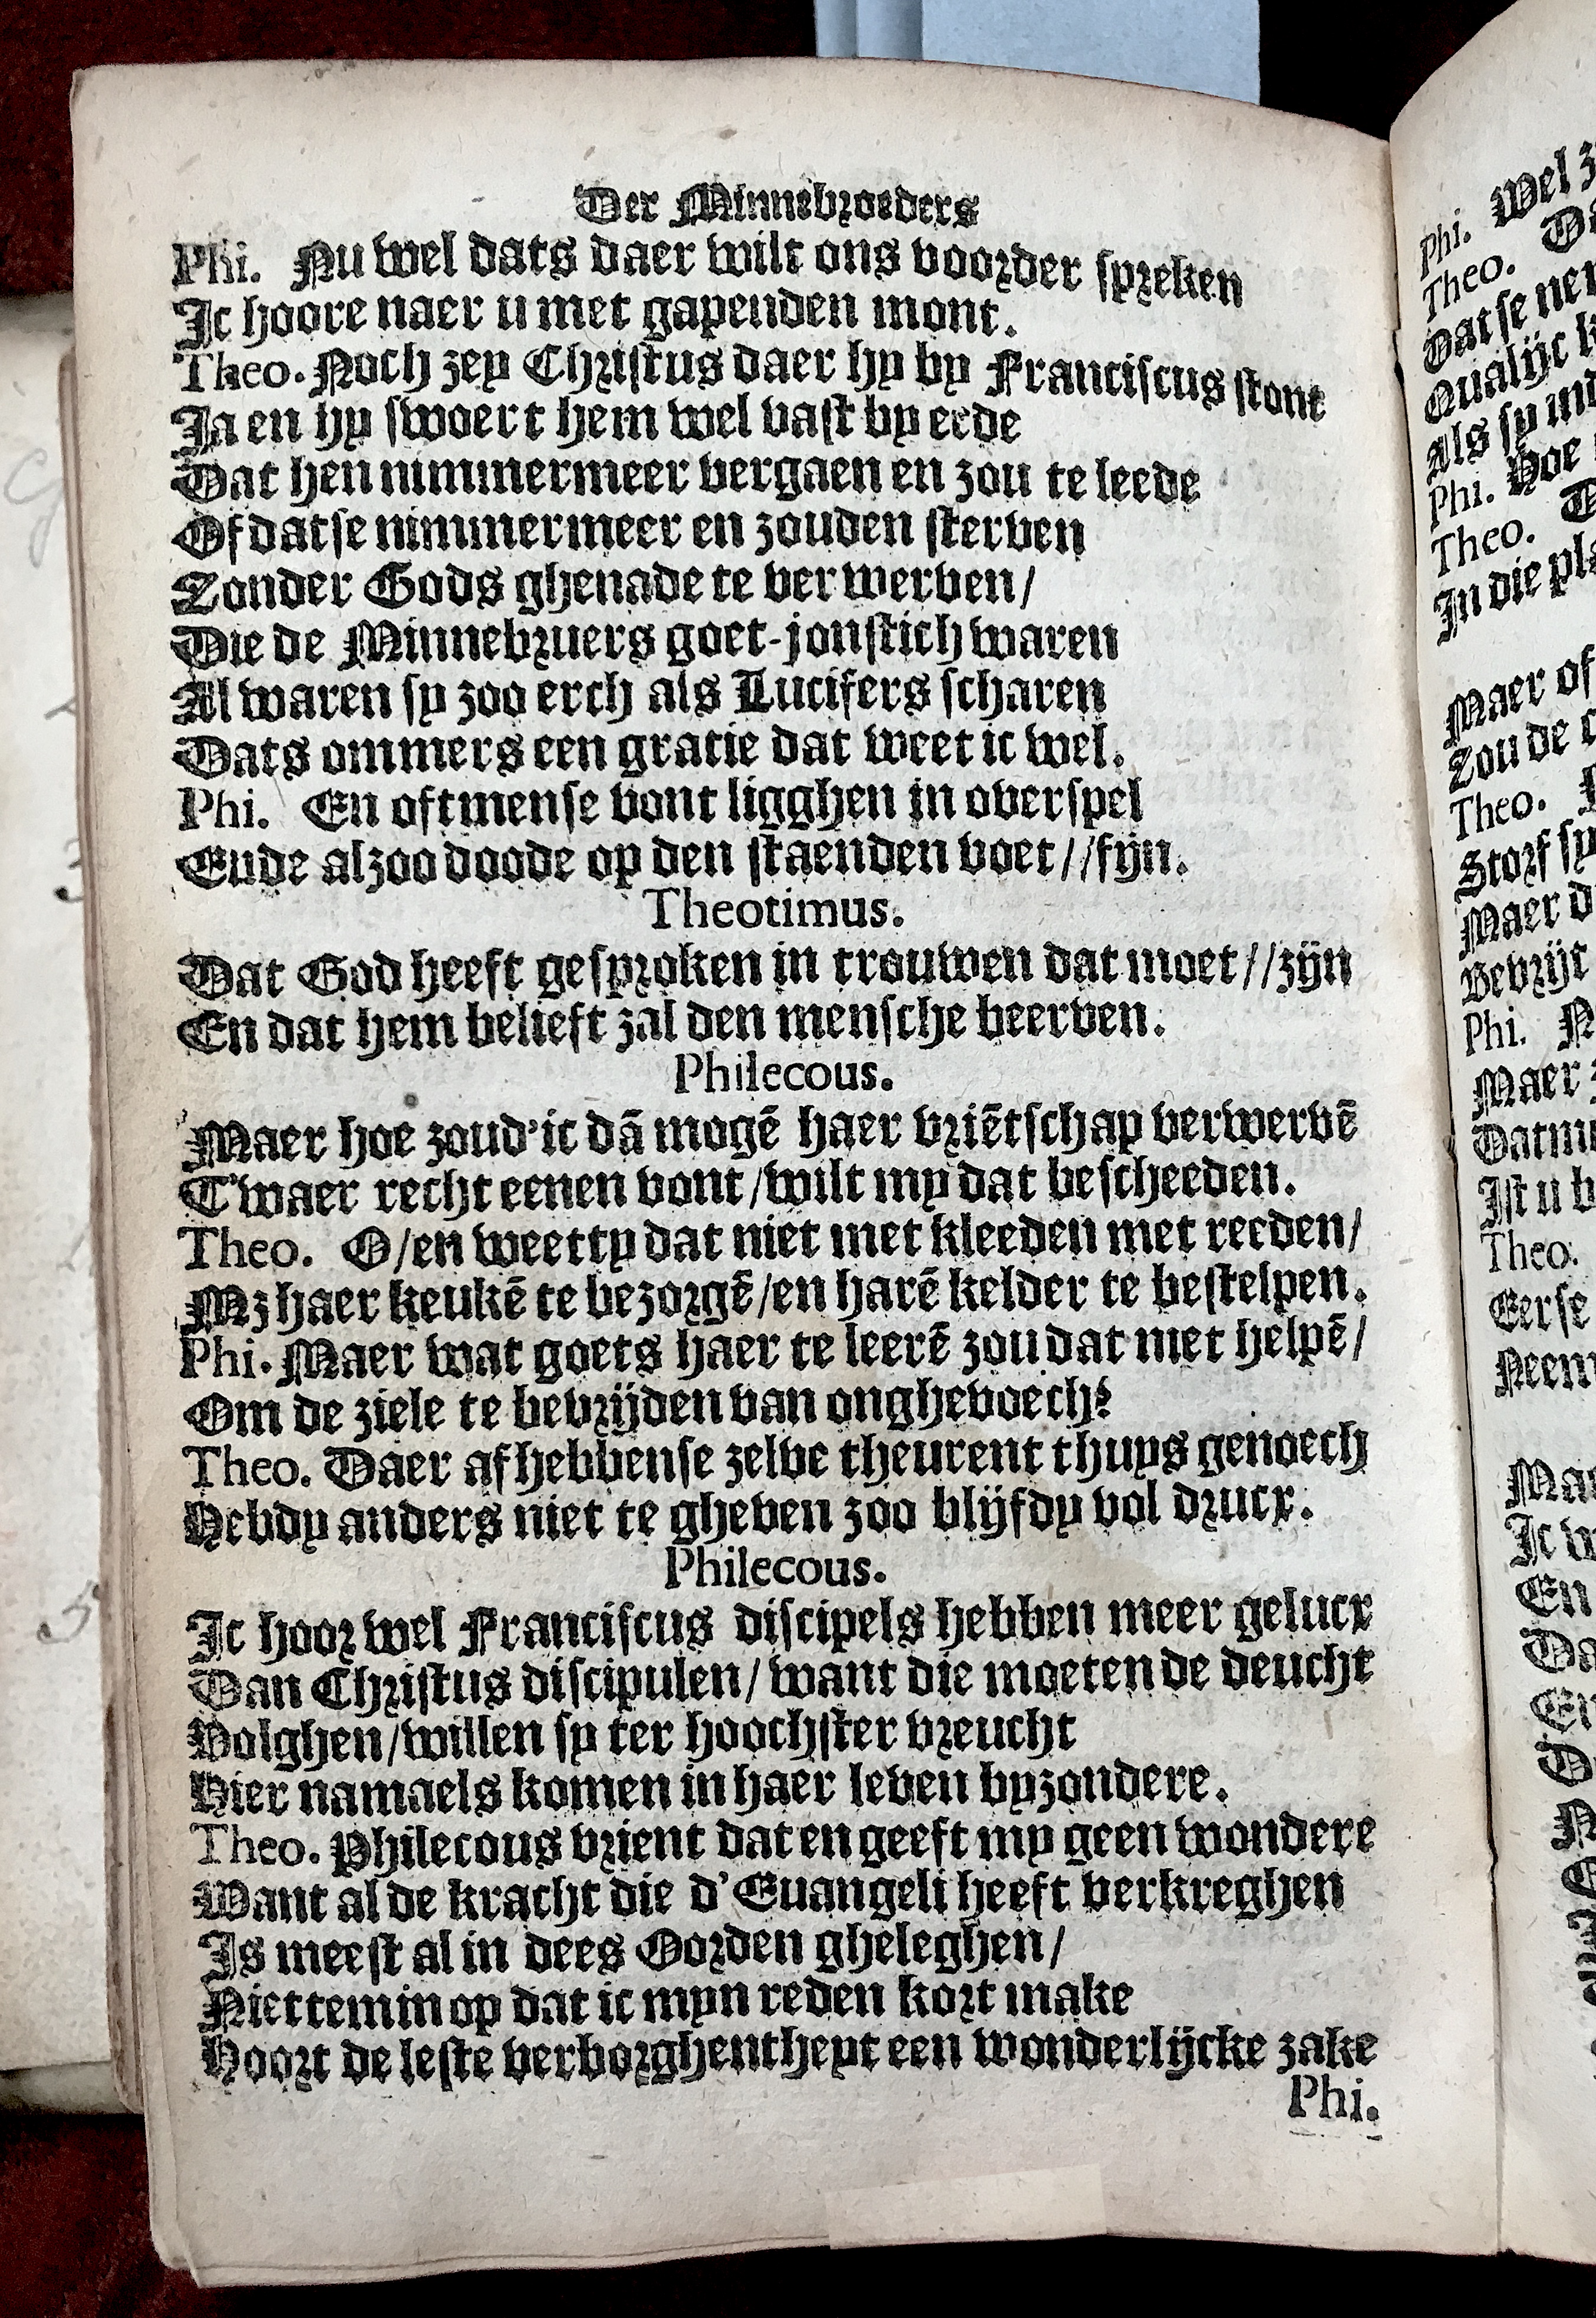 Der Minnebroeders
Phi. Nu wel dats daer wilt ons voorder spreken
Ic hoore naer u met gapenden mont.
Theo. Noch zey Christus daer hy by Franciscus stont
Ja en hy swoert hem wel vast by eede
Dat hen nimmermeer vergaen en zou te leede
Of datse nimmermeer en zouden sterven
Zonder Gods ghenade te verwerven/
Die de Minnebruers goet-jonstich waren
Al waren sy zoo erch als Lucifers scharen
Dats ommers een gratie dat weet ic wel.
Phi. En oftmense vont ligghen in overspel
Ende alzoo doode op den staenden voet//fijn.
Theotimus.
Dat God heeft gesproken in trouwen dat moet//zijn
En dat hem belieft zal den mensche beerven.
Philecous.
Maer hoe zoud'ic dā mogē haer vriētschap verwervē
T'waer recht eenen vont/wilt my dat bescheeden.
Theo. O/en weetty dat niet met kleeden met reeden/
Mz haer keukē te bezorgē/en harē kelder te bestelpen.
Phi. Maer wat goets haer te leerē zou dat niet helpē/
Om de ziele te bevrijden van onghevoech?
Theo. Daer af hebbense zelve theurent thuys genoech
Hebdy anders niet te gheven zoo blijfdy vol drucx.
Philecous.
Ic hoor wel Franciscus discipels hebben meer gelucx
Dan Christus discipulen/want die moeten de deucht
Volghen/willen sy ter hoochster vreucht
Hier namaels komen in haer leven byzondere.
Theo. Philecous vrient dat en geeft my geen wondere
Want al de kracht die d'Euangeli heeft verkreghen
Is meest al in dees Oorden gheleghen/
Niettemin op dat ic myn reden kort make
Hoort de leste verborghentheyt een wonderlijcke zake
Phi.
Phi. Wel
Theo.
Dat se
Qualijc
Als sy
Phi. Hoe
Theo.
In die
Maer of
Zou de
Theo.
Storf sy
Maer
Bevrijt
Phi.
Maer
Ist u
Theo.
Eer se
Ic
En